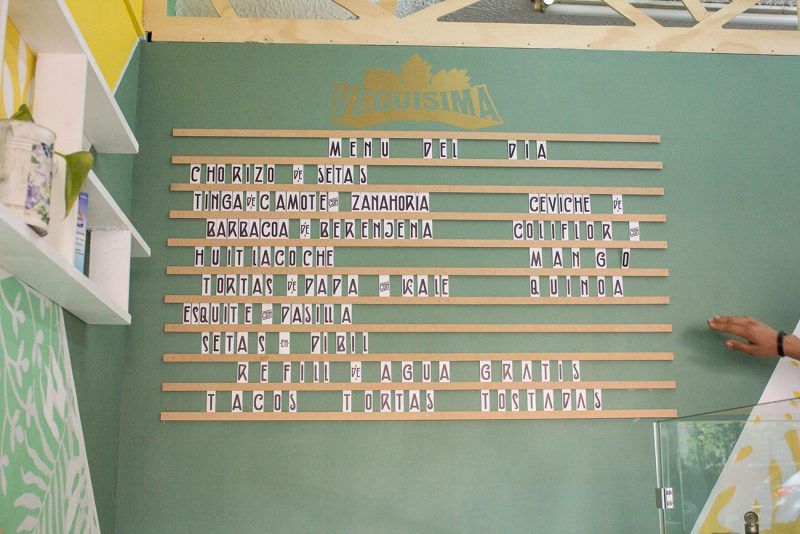 VEGUÍSIMA
MENU DEL DIA
CHORIZO de SETAS
TINGA DE CAMOTE con ZANAHORIA
BARBACOA de BERENJENA
HUITLACOCHE
TORTAS de PAPA con KALE
ESQUITE con PASILLA
SETAS en PIBIL
CEVICHE de
COLIFLOR con
MANGO
QUINOA
REFILL de AGUA GRATIS
TACOS TORTAS TOSTADAS